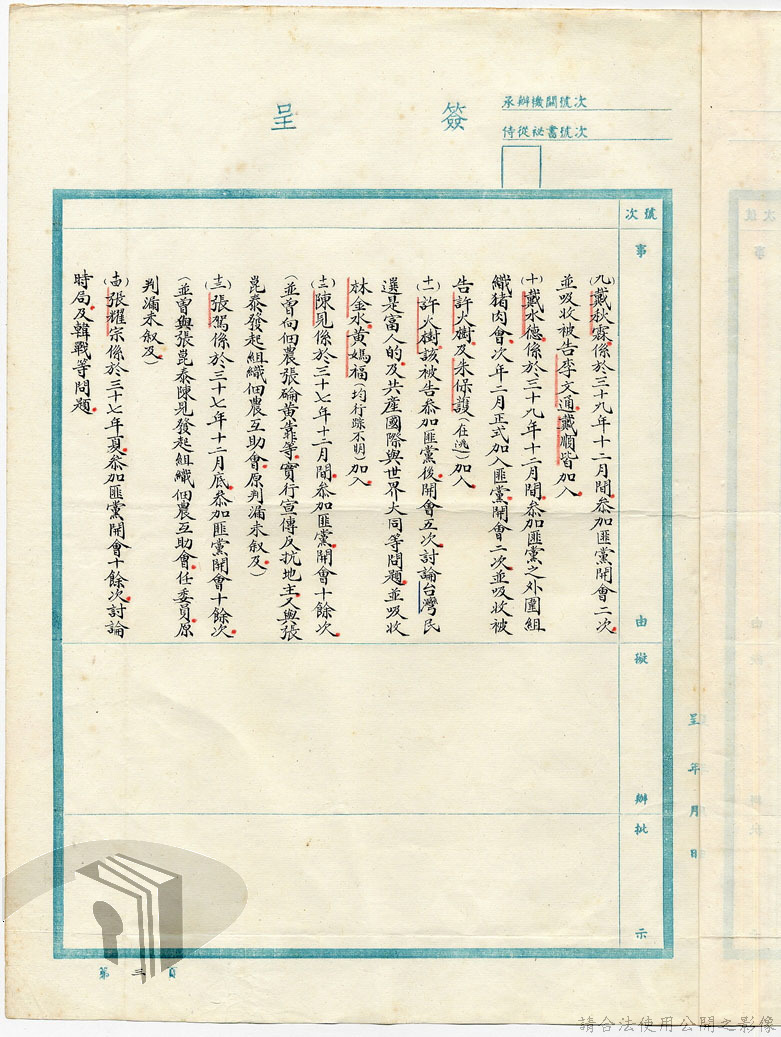 簽呈
承辦機關號次
侍從祕書號次
號次
事由
擬辦
批示
呈 年 月 日
(九)戴秋霖係於三十九年十二月間參加匪黨開會二次
並吸收被告李文通戴順皆加入
(十)戴水德係於三十九年十二月間參加匪黨之外圍組
織猪肉會次年二月正式加入匪黨開會二次並吸收被
告許火樹及朱保護(在逃)加入
(十一)許火樹該被告參加匪黨後開會五次討論台灣民
選是富人的及共產國際與世界大同等問題並吸收
林金水黃媽福(均行踪不明)加入
(十二)陳見係於三十七年十二月間參加匪黨開會十餘次
(並曾向佃農張碖黃靠等實行宣傳反抗地主又與張
崑泰發起組織佃農互助會原判漏未叙及)
(十三)張駕係於三十七年十二月底參加匪黨開會十餘次
(並曾與張崑泰陳見發起組織佃農互助會任委員原
判漏未叙及)
(十四)張耀宗係於三十七年夏參加匪黨開會十餘次討論
時局及韓戰等問題
第三頁
請合法使用公開之影像